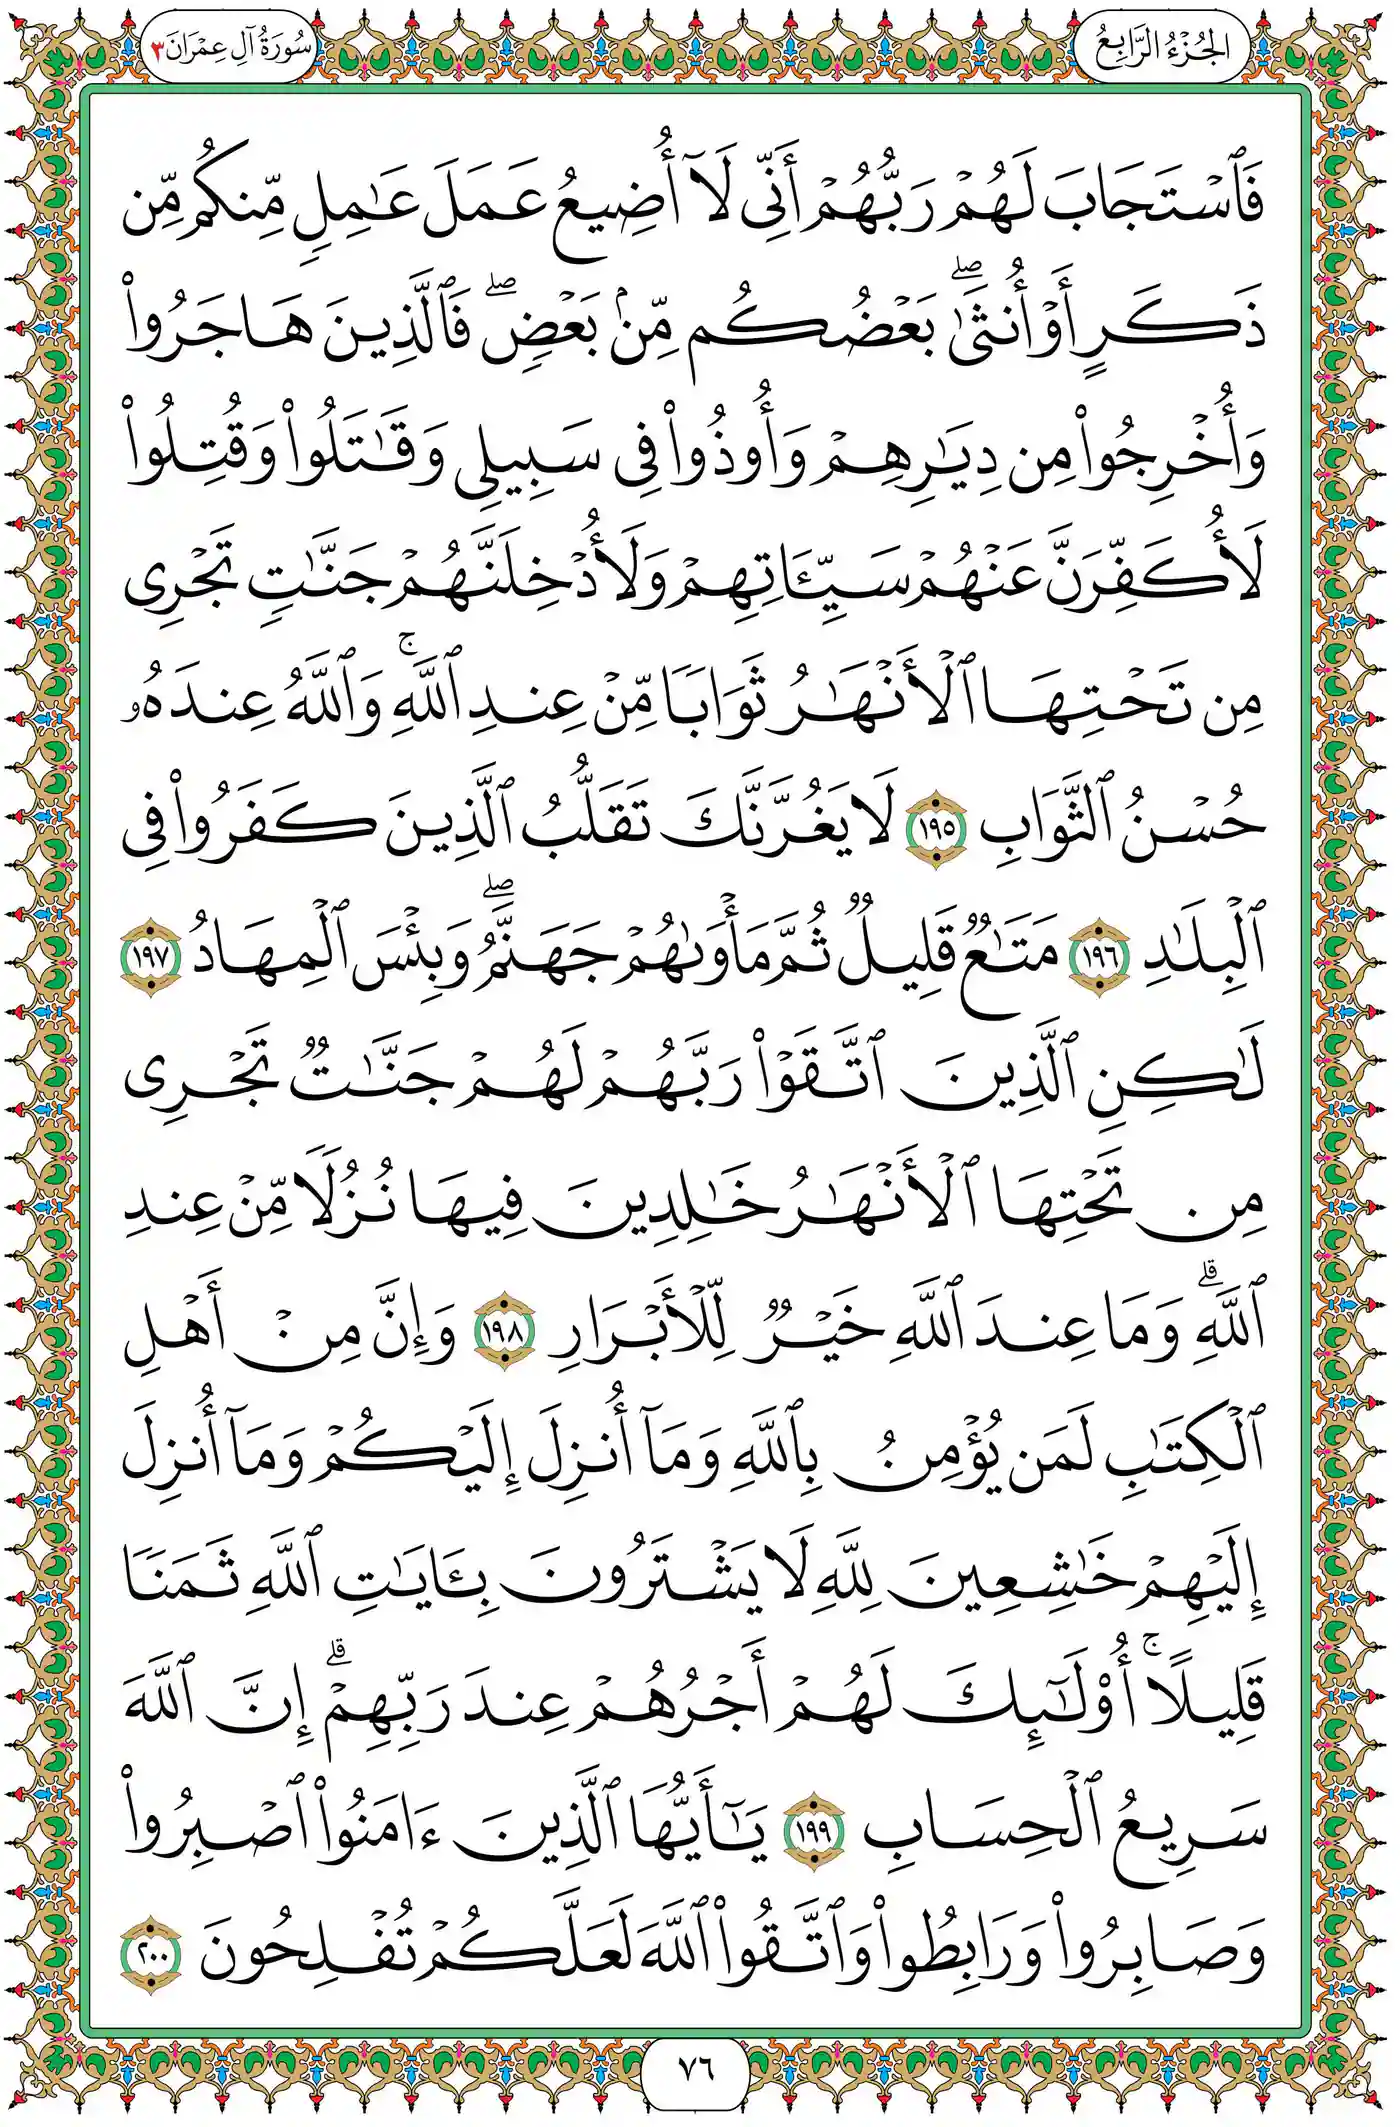 الجُزْءُ الرَّابِعُ
سُورَةُ آلِ عِمْرَانَ ٣
فَٱسْتَجَابَ لَهُمْ رَبُّهُمْ أَنِّى لَآ أُضِيعُ عَمَلَ عَـٰمِلٍ مِّنكُم مِّن
ذَكَرٍ أَوْ أُنثَىٰ ۖ بَعْضُكُم مِّنۢ بَعْضٍ ۖ فَٱلَّذِينَ هَاجَرُوا۟
وَأُخْرِجُوا۟ مِن دِيَـٰرِهِمْ وَأُوذُوا۟ فِى سَبِيلِى وَقَـٰتَلُوا۟ وَقُتِلُوا۟
لَأُكَفِّرَنَّ عَنْهُمْ سَيِّـَٔاتِهِمْ وَلَأُدْخِلَنَّهُمْ جَنَّـٰتٍ تَجْرِى
مِن تَحْتِهَا ٱلْأَنْهَـٰرُ ثَوَابًا مِّنْ عِندِ ٱللَّهِ ۚ وَٱللَّهُ عِندَهُۥ
حُسْنُ ٱلثَّوَابِ ١٩٥ لَا يَغُرَّنَّكَ تَقَلُّبُ ٱلَّذِينَ كَفَرُوا۟ فِى
ٱلْبِلَـٰدِ ١٩٦ مَتَـٰعٌ قَلِيلٌ ثُمَّ مَأْوَىٰهُمْ جَهَنَّمُ ۖ وَبِئْسَ ٱلْمِهَادُ ١٩٧
لَـٰكِنِ ٱلَّذِينَ ٱتَّقَوْا۟ رَبَّهُمْ لَهُمْ جَنَّـٰتٌ تَجْرِى
مِن تَحْتِهَا ٱلْأَنْهَـٰرُ خَـٰلِدِينَ فِيهَا نُزُلًا مِّنْ عِندِ
ٱللَّهِ ۗ وَمَا عِندَ ٱللَّهِ خَيْرٌ لِّلْأَبْرَارِ ١٩٨ وَإِنَّ مِنْ أَهْلِ
ٱلْكِتَـٰبِ لَمَن يُؤْمِنُ بِٱللَّهِ وَمَآ أُنزِلَ إِلَيْكُمْ وَمَآ أُنزِلَ
إِلَيْهِمْ خَـٰشِعِينَ لِلَّهِ لَا يَشْتَرُونَ بِـَٔايَـٰتِ ٱللَّهِ ثَمَنًا
قَلِيلًا ۚ أُو۟لَـٰٓئِكَ لَهُمْ أَجْرُهُمْ عِندَ رَبِّهِمْ ۗ إِنَّ ٱللَّهَ
سَرِيعُ ٱلْحِسَابِ ١٩٩ يَـٰٓأَيُّهَا ٱلَّذِينَ ءَامَنُوا۟ ٱصْبِرُوا۟
وَصَابِرُوا۟ وَرَابِطُوا۟ وَٱتَّقُوا۟ ٱللَّهَ لَعَلَّكُمْ تُفْلِحُونَ ٢٠٠
٧٦